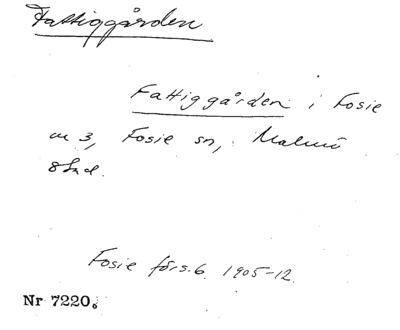 Fattiggården
Fattiggården i Fosie
nr 3, Fosie sn, Malmö
stad.
Fosie förs.6. 1905-12.
Nr 7220.